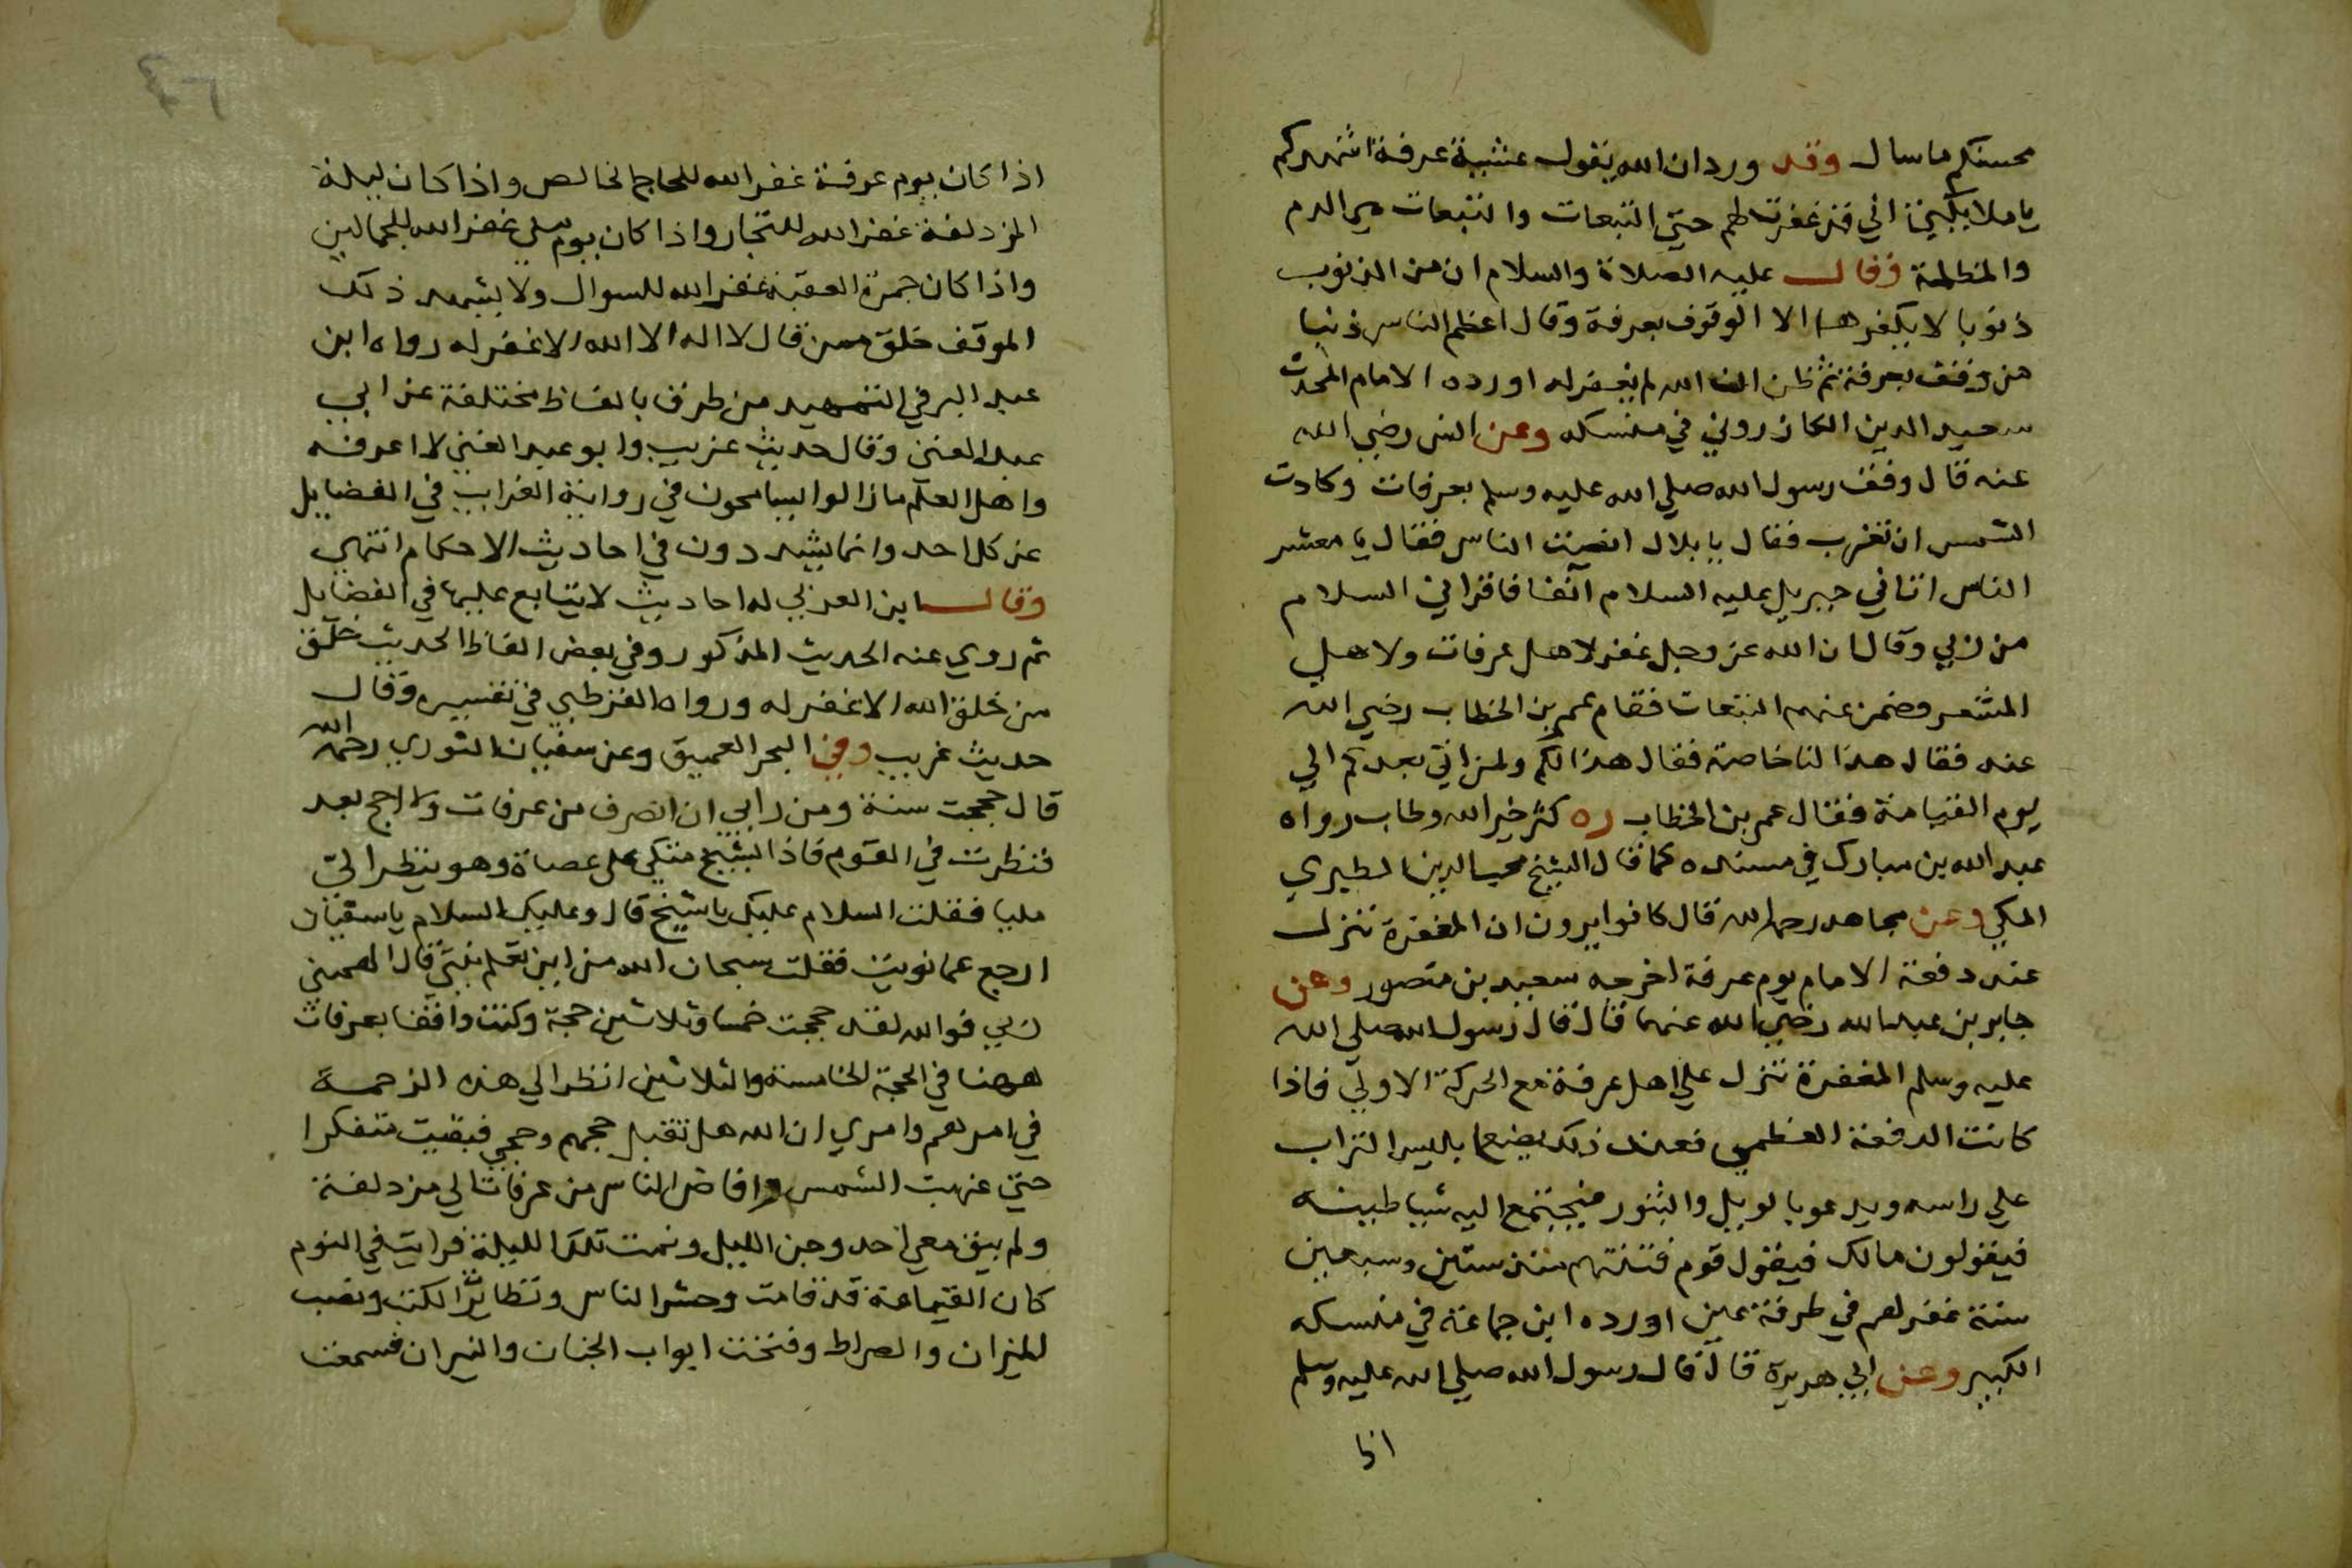 محسنكم ما سال وقد ورد ان الله يقول عشية عرفة اشهدكم
يا ملايكتي اني قد غفرت لهم حتي التبعات والتبعات هي الدم
والمظلمة وقال عليه الصلاة والسلام ان من الذنوب
ذنوبا لا يكفرها الا الوقوف بعرفة وقال اعظم الناس ذنبا
من وقف بعرفة ثم ظن ان الله لم يغفر له اورده الامام المحدث
سعيد الدين الكازروني في منسكه وعن انس رضي الله
عنه قال وقف رسول الله صلي الله عليه وسلم بعرفات وكادت
الشمس ان تغرب فقال يا بلال انصت الناس فقال يا معشر
الناس اتاني جبريل عليه السلام آنفا فاقراني السلام
من ربي وقال ان الله عز وجل غفر لاهل عرفات ولاهل
المشعر وضمن عنهم التبعات فقام عمر بن الخطاب رضي الله
عنه فقال هذا لنا خاصة فقال هذا لكم ولمن اتي بعدكم الي
يوم القيامة فقال عمر بن الخطاب ره كثر خير الله وطاب رواه
عبد الله بن مبارك في مسنده كما قال الشيخ محب الدين الطبري
المكي وعن مجاهد رحمه الله قال كانوا يرون ان المغفرة تنزل
عند دفعة الامام يوم عرفة اخرجه سعيد بن منصور وعن
جابر بن عبد الله رضي الله عنهما قال قال رسول الله صلي الله
عليه وسلم المغفرة تنزل علي اهل عرفة مع الحركة الاولي فاذا
كانت الدفعة العظمي فعند ذلك يضع ابليس التراب
علي راسه ويدعو بالويل والثبور فيجتمع اليه شياطينه
فيقولون مالك فيقول قوم فتنتهم منذ ستين وسبعين
سنة غفر لهم في طرفة عين اورده ابن جماعة في منسكه
الكبير وعن ابي هريرة قال قال رسول الله صلي الله عليه وسلم
اذا
اذا كان يوم عرفة غفر الله للحاج الخالص واذا كان ليلة
المزدلفة غفر الله للتجار واذا كان يوم مني غفر الله للجمالين
واذا كان جمرة العقبة غفر الله للسوال ولا يشهد ذلك
الموقف خلق ممن قال لا اله الا الله الا غفر له رواه ابن
عبد البر في التمهيد من طرق بالفاظ مختلفة عن ابي
عبد الغني وقال حديث غريب وابو عبد الغني لا اعرفه
واهل العلم ما زالوا يسامحون في رواية الغرايب في الفضايل
عن كل احد وانما يشددون في احاديث الاحكام انتهي
وقال ابن العربي له احاديث لا يتابع عليها في الفضايل
ثم روي عنه الحديث المذكور وفي بعض الفاظ الحديث خلق
من خلق الله الا غفر له ورواه القرطبي في تفسيره وقال
حديث غريب وفي البحر العميق وعن سفيان الثوري رحمه الله
قال حججت سنة ومن رايي ان انصرف من عرفات ولا احج بعد
فنظرت في القوم فاذا الشيخ متكي علي عصاة وهو ينظر الي
مليا فقلت السلام عليك يا شيخ قال وعليك السلام يا سفيان
ارجع عما نويت فقلت سبحان الله من اين تعلم نيتي قال الهمني
ربي فوالله لقد حججت خمسا وثلاثين حجة وكنت واقفا بعرفات
ههنا في الحجة الخامسة والثلاثين انظر الي هذه الزحمة
في امرهم وامري ان الله هل تقبل حجهم وحجي فبقيت متفكرا
حتي غربت الشمس وافاض الناس من عرفات الي مزدلفة
ولم يبق معي احد وجن الليل ونمت تلك الليلة فرايت في النوم
كان القيامة قد قامت وحشر الناس وتطايرت الكتب ونصب
الميزان والصراط وفتحت ابواب الجنان والنيران فسمعت